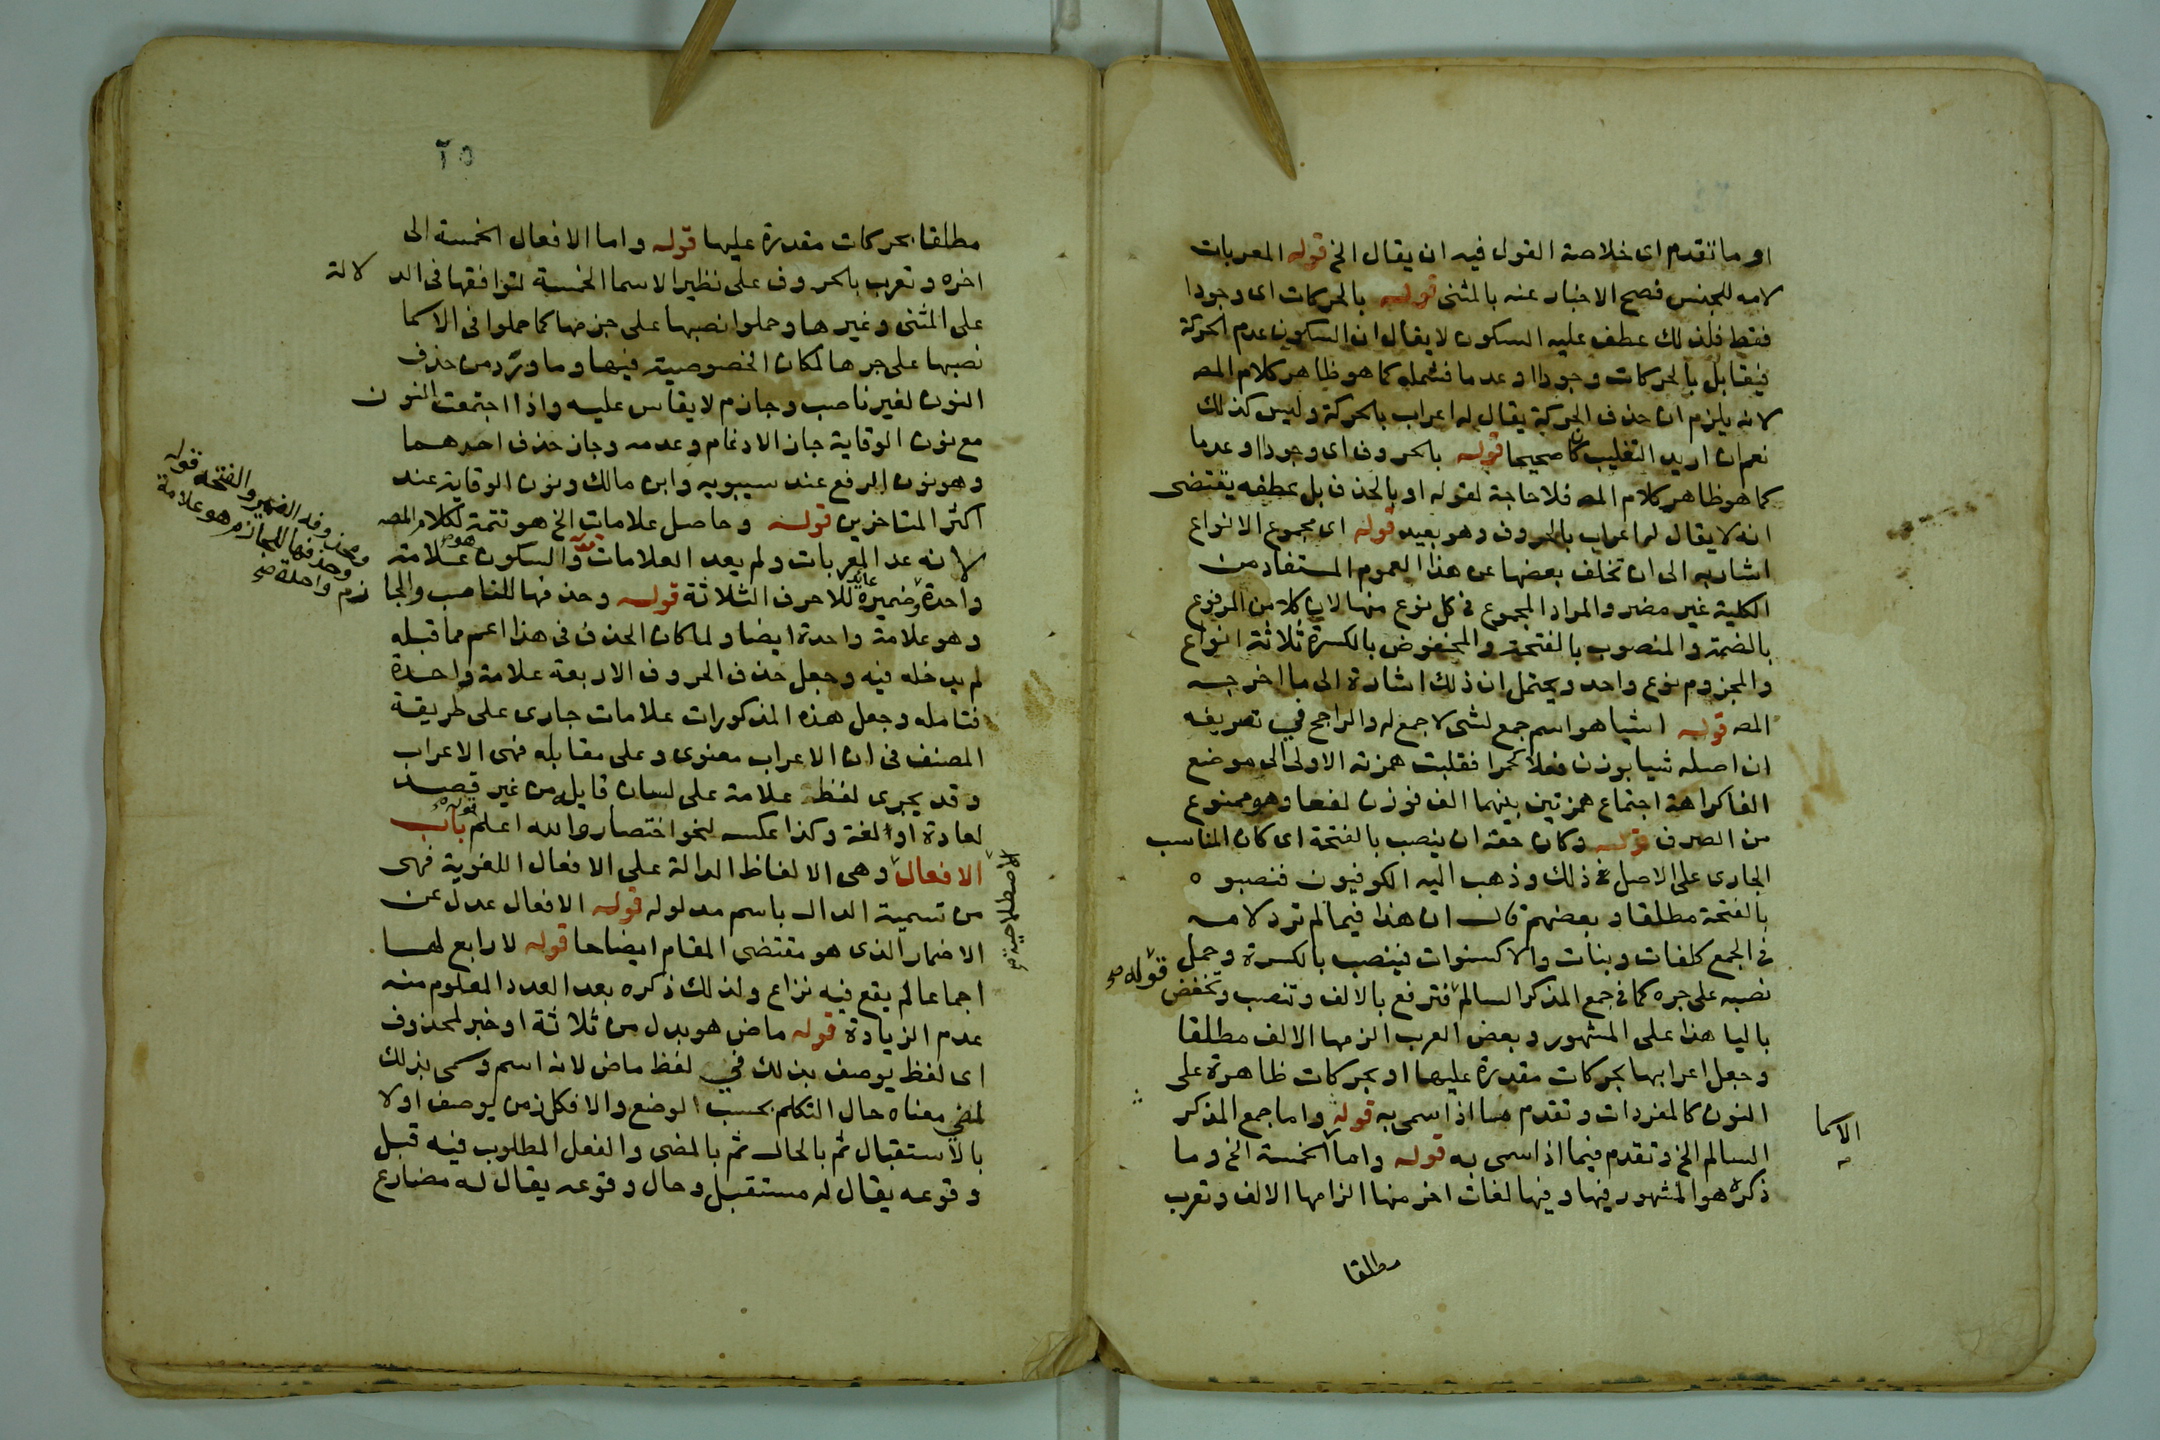 او ما تقدم اى خلاصة القول فيه ان يقال الخ قوله المعربات
لامه للجنس فصح الاخبار عنه بالمثنى قوله بالحركات اى وجودا
فقط فلذلك عطف عليه السكون لا يقال ان السكون عدم الحركة
فيقابل بالحركات وجودا وعدما فشمله كما هو ظاهر كلام المص
لانه يلزم ان حذف الحركة يقال له اعراب بالحركة وليس كذلك
نعم ان اريد التغليب كان صحيحا قوله بالحروف اى وجودا وعدما
كما هو ظاهر كلام المص فلا حاجة لقوله او بالحذف بل عطفه يقتضى
انه لا يقال له اعراب بالحروف وهو بعيد قوله اى مجموع الانواع
اشار به الى ان تخلف بعضها عن هذا العموم المستفاد من
الكلية غير مضر والمراد المجموع فى كل نوع منها لان كلا من المرفوع
بالضمة والمنصوب بالفتحة والمخفوض بالكسرة ثلاثة انواع
والمجزوم نوع واحد ويحتمل ان ذلك اشارة الى ما اخرجه
المص قوله اشيا هو اسم جمع لشى لا جمع له والراجح فى تصريفه
ان اصله شيا بوزن فعلا كحمرا فقلبت همزته الاولى الى موضع
الفا كراهة اجتماع همزتين بينهما الف فوزن لفعا وهو ممنوع
من الصرف قوله وكان حقه ان ينصب بالفتحة اى كان المناسب
الجارى على الاصل ذلك وذهب اليه الكوفيون فنصبوه
بالفتحة مطلقا وبعضهم قال ان هذا فيما لم ترد لامه
فى الجمع كلغات وبنات والا كسنوات فينصب بالكسرة وحمل
نصبه على جره كما فى جمع المذكر السالم فترفع بالالف وتنصب وتخفض
قوله صح
باليا هذا على المشهور وبعض العرب الزمها الالف مطلقا
وجعل اعرابها بحركات مقدرة عليها او بحركات ظاهرة على
النون كالمفردات وتقدم هنا اذا سمى به قوله واما جمع المذكر
السالم الخ وتقدم فيما اذا سمى به قوله واما الخمسة الخ وما
الاسما
ذكره هو المشهور فيها وفيها لغات اخر منها الزامها الالف وتعرب
مطلقا
٢٥
مطلقا بحركات مقدرة عليها قوله واما الافعال الخمسة الى
اخره وتعرب بالحروف على نظير الاسما الخمسة لتوافقها فى الدلالة
على المثنى وغيرها وحملوا نصبها على جزمها كما حملوا فى الاسما
نصبها على جرها لمكان الخصوصية فيها وما ورد من حذف
النون لغير ناصب وجازم لا يقاس عليه واذا اجتمعت النون
مع نون الوقاية جاز الادغام وعدمه وجاز حذف احدهما
وهو نون الرفع عند سيبويه وابن مالك ونون الوقاية عند
اكثر المتاخرين قوله وحاصل علامات الخ هو تتمة لكلام المص
لانه عد المعربات ولم يعد العلامات قوله والسكون هو علامة
واحدة وضميره عائد للاحرف الثلاثة قوله وحذفها للناصب والجازم
وهو علامة واحدة ايضا ولما كان الحذف فى هذا اعم مما قبله
لم يدخله فيه وجعل حذف الحروف الاربعة علامة واحدة
فتامله وجعل هذه المذكورات علامات جارى على طريقة
المصنف فى ان الاعراب معنوى وعلى مقابله فهى الاعراب
وقد يجرى لفظ علامة على لسان قايله من غير قصد
لعادة او الغة وكذا عكسه لنحو اختصار والله اعلم قوله باب
الافعال وهى الالفاظ الدالة على الافعال اللغوية فهى
الاصطلاحية صح
من تسمية الدال باسم مدلوله قوله الافعال عدل عن
الاضمار الذى هو مقتضى المقام ايضاحا قوله لا رابع لها
اجماعا لم يقع فيه نزاع ولذلك ذكره بعد العدد المعلوم منه
عدم الزيادة قوله ماض هو بدل من ثلاثة او خبر لمحذوف
اى لفظ يوصف بذلك فى لفظ ماض لانه اسم وسمى بذلك
لمضى معناه حال التكلم بحسب الوضع والا فكل زمن يوصف اولا
بالاستقبال ثم بالحال ثم بالمضى والفعل المطلوب فيه قبل
وقوعه يقال له مستقبل وحال وقوعه يقال له مضارع
والفتحة قوله
وحذفها للجازم هو علامة
واحدة صح